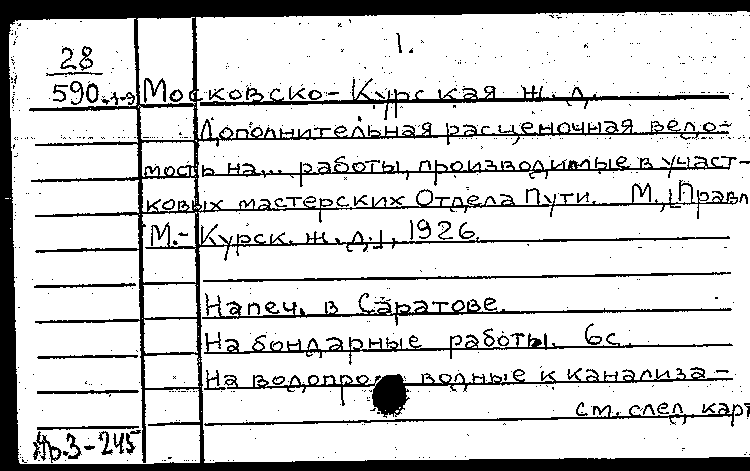 1.
28
590.1-9 Московско-Курская ж.д.
Дополнительная расценочная ведо-
мость на... работы, производимые в участ-
ковых мастерских Отдела Пути. М., [Правл.
М.-Курск. ж.д.], 1926.
Напеч. в Саратове.
На бондарные работы. 6с.
На водопроводные к канализа-
см. след. карт
Др.3-245